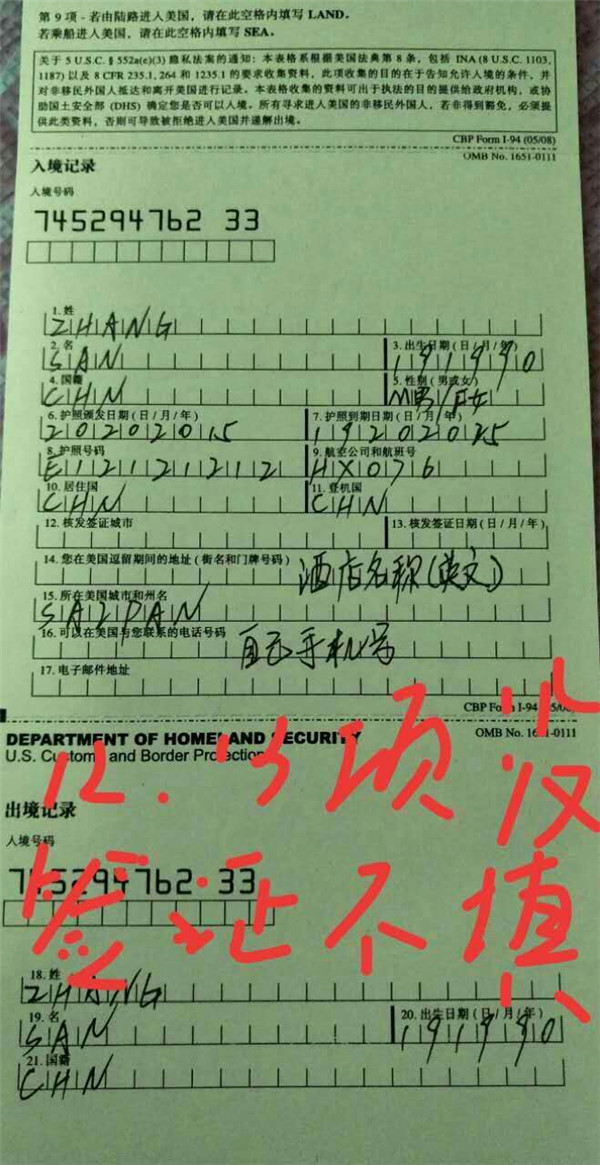 第 9 项 - 若由陆路进入美国，请在此空格内填写 LAND。
若乘船进入美国，请在此空格内填写 SEA。
关于 5 U.S.C. § 552a(e)(3) 隐私法案的通知：本表格系根据美国法典第 8 条，包括 INA (8 U.S.C. 1103,
1187) 以及 8 CFR 235.1, 264 和 1235.1 的要求收集资料，此项收集的目的在于告知允许入境的条件，并
对非移民外国人抵达和离开美国进行记录。本表格收集的资料可出于执法的目的提供给政府机构，或协
助国土安全部 (DHS) 确定您是否可以入境。所有寻求进入美国的非移民外国人，若非得到豁免，必须提
供此类资料，否则可导致被拒绝进入美国并递解出境。
CBP Form I-94 (05/08)
OMB No. 1651-0111
入境记录
入境号码
745294762 33
1. 姓
ZHANG
2. 名
3. 出生日期 (日 / 月 / 年)
SAN
191990
4. 国籍
5. 性别 (男或女)
CHN
M男/F女
6. 护照颁发日期 (日 / 月 / 年)
7. 护照到期日期 (日 / 月 / 年)
20202015
19202025
8. 护照号码
9. 航空公司和航班号
E12121212
HX076
10. 居住国
11. 登机国
CHN
CHN
12. 核发签证城市
13. 核发签证日期 (日 / 月 / 年)
14. 您在美国逗留期间的地址 (街名和门牌号码)
酒店名称(英文)
15. 所在美国城市和州名
SAIPAN
16. 可以在美国与您联系的电话号码
自己手机号
17. 电子邮件地址
CBP Form I-94 (05/08)
DEPARTMENT OF HOMELAND SECURITY
OMB No. 1651-0111
U.S. Customs and Border Protection
12.13项没
签证不填
出境记录
入境号码
745294762 33
18. 姓
ZHANG
19. 名
20. 出生日期 (日 / 月 / 年)
SAN
191990
21. 国籍
CHN